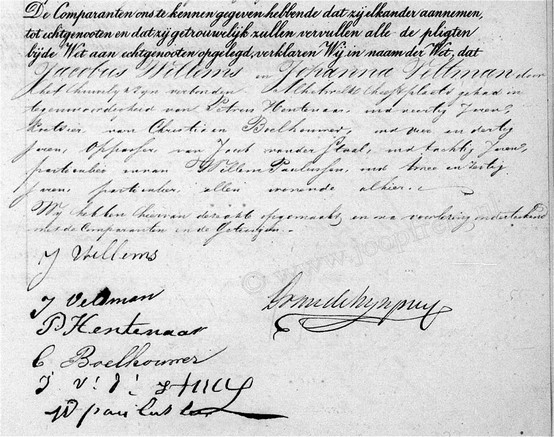 De Comparanten ons te kennen gegeven hebbende dat zij elkander aannemen,
tot echtgenooten en dat zij getrouwelijk zullen vervullen alle de pligten
bij de Wet aan echtgenooten opgelegd, verklaren Wij in naam der Wet, dat
Jacobus Willems en Johanna Veltman door
het huwelijk zijn verbonden heeft plaats gehad in
tegenwoordigheid van Petrus Hentenaar, oud veertig Jaren,
van Christiaan Boelhouwer, oud en dertig
Jaren, Oppasser, van Joost van der oud tachtig Jaren,
particulier en van Willem Paulussen, oud twee en zestig
Jaren, particulier, allen wonende alhier.
Wij hebben hiervan deze akte opgemaakt, en na voorlezing onderteekend
met de Comparanten en de Getuigen.
J Willems
J Veldman
P Hentenaar
C Boelhouwer
J V D
W paulussen
© www.joopfret.nl